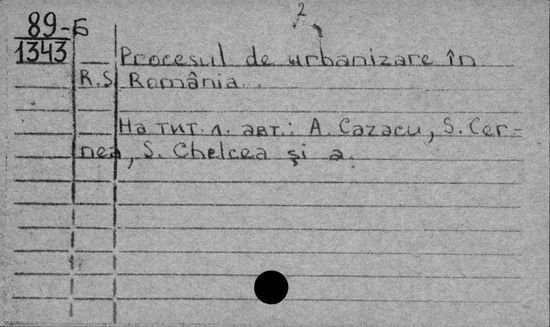 2
89-Б
1343
Procesul de urbanizare în
R.S. România.
На тит. л. авт.: A. Cazacu, S. Cer=
nea, S. Chelcea şi a.